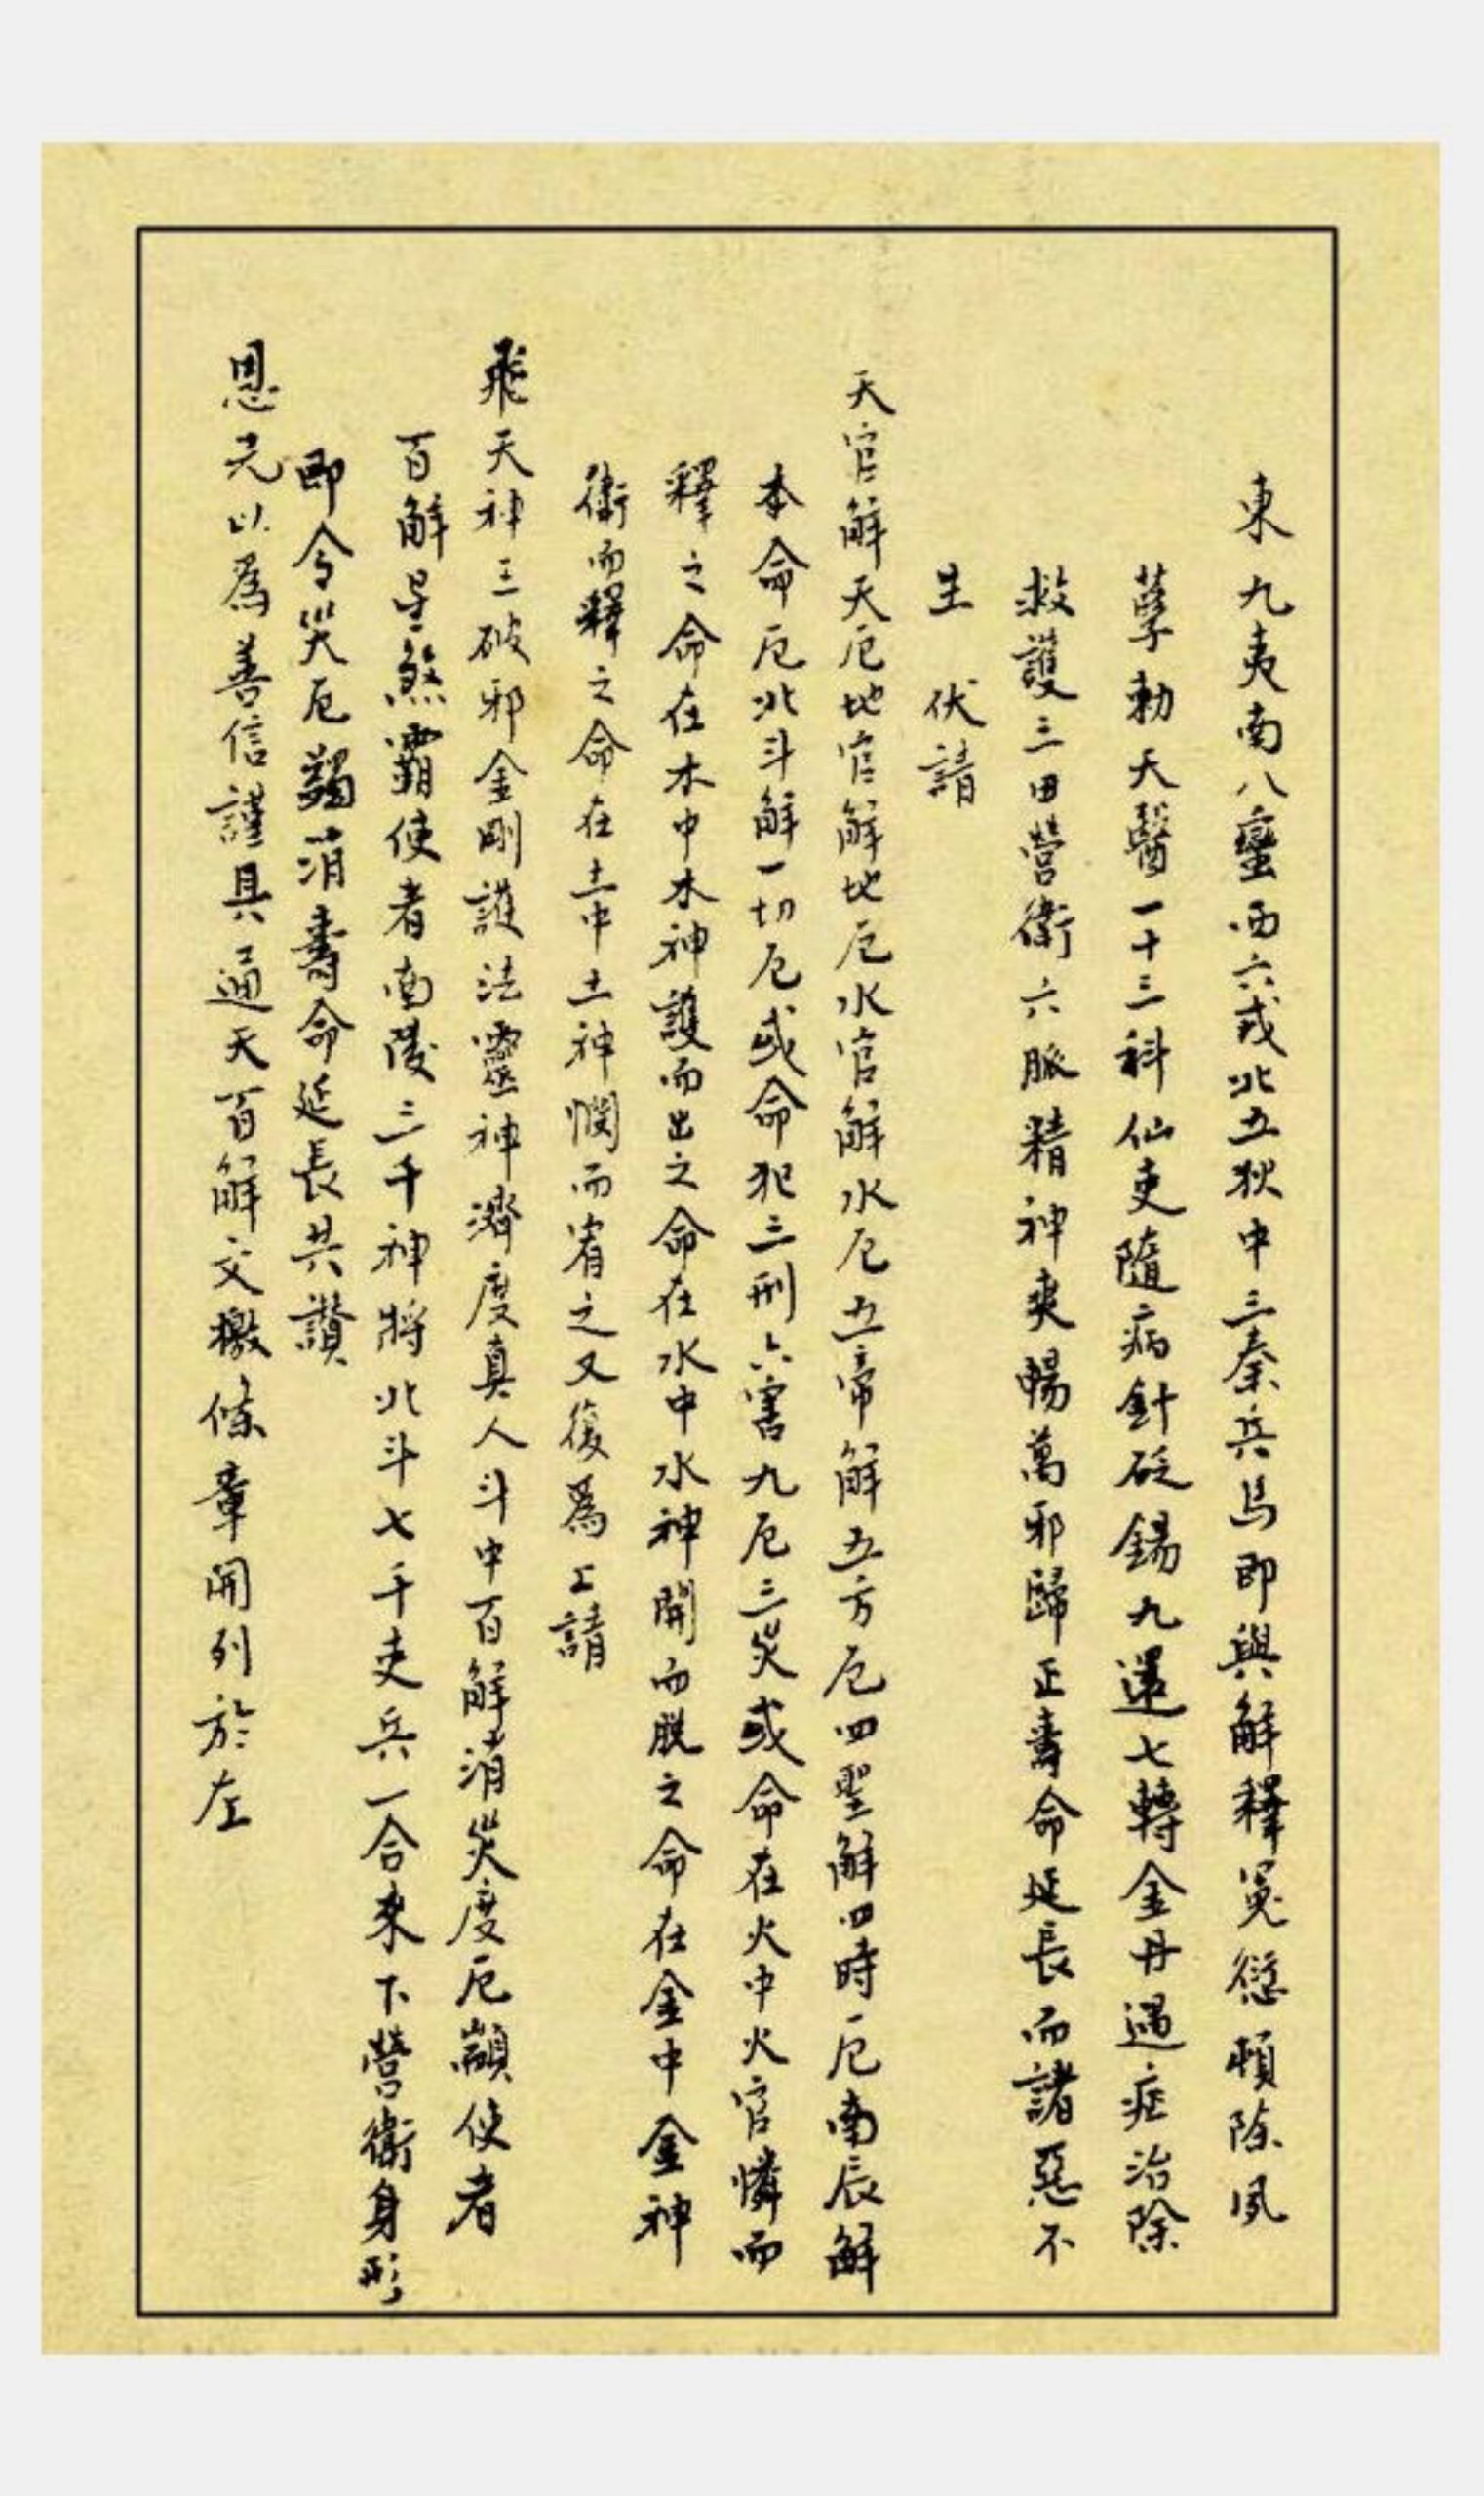 東九夷南八蠻西六戎北五狄中三秦兵馬即與解釋冤愆頓除夙
孽勅天醫一十三科仙吏隨病針砭錫九還七轉金丹過症治除
救護三田營衛六脈精神爽暢萬邪歸正壽命延長而諸惡不
生 伏請
天官解天厄地官解地厄水官解水厄五帝解五方厄四聖解四時厄南辰解
本命厄北斗解一切厄或命犯三刑六害九厄三災或命在火中火官憐而
釋之命在木中木神護而出之命在水中水神開而脱之命在金中金神
衛而釋之命在土中土神憫而宥之又復爲上請
飛天神王破邪金剛護法靈神濟度真人斗中百解消災度厄顓使者
百解星煞霸使者南陵三千神將北斗七千吏兵一合來下營衛身形
即令災厄蠲消壽命延長共讚
恩元以爲善信謹具通天百解交檄條章開列於左